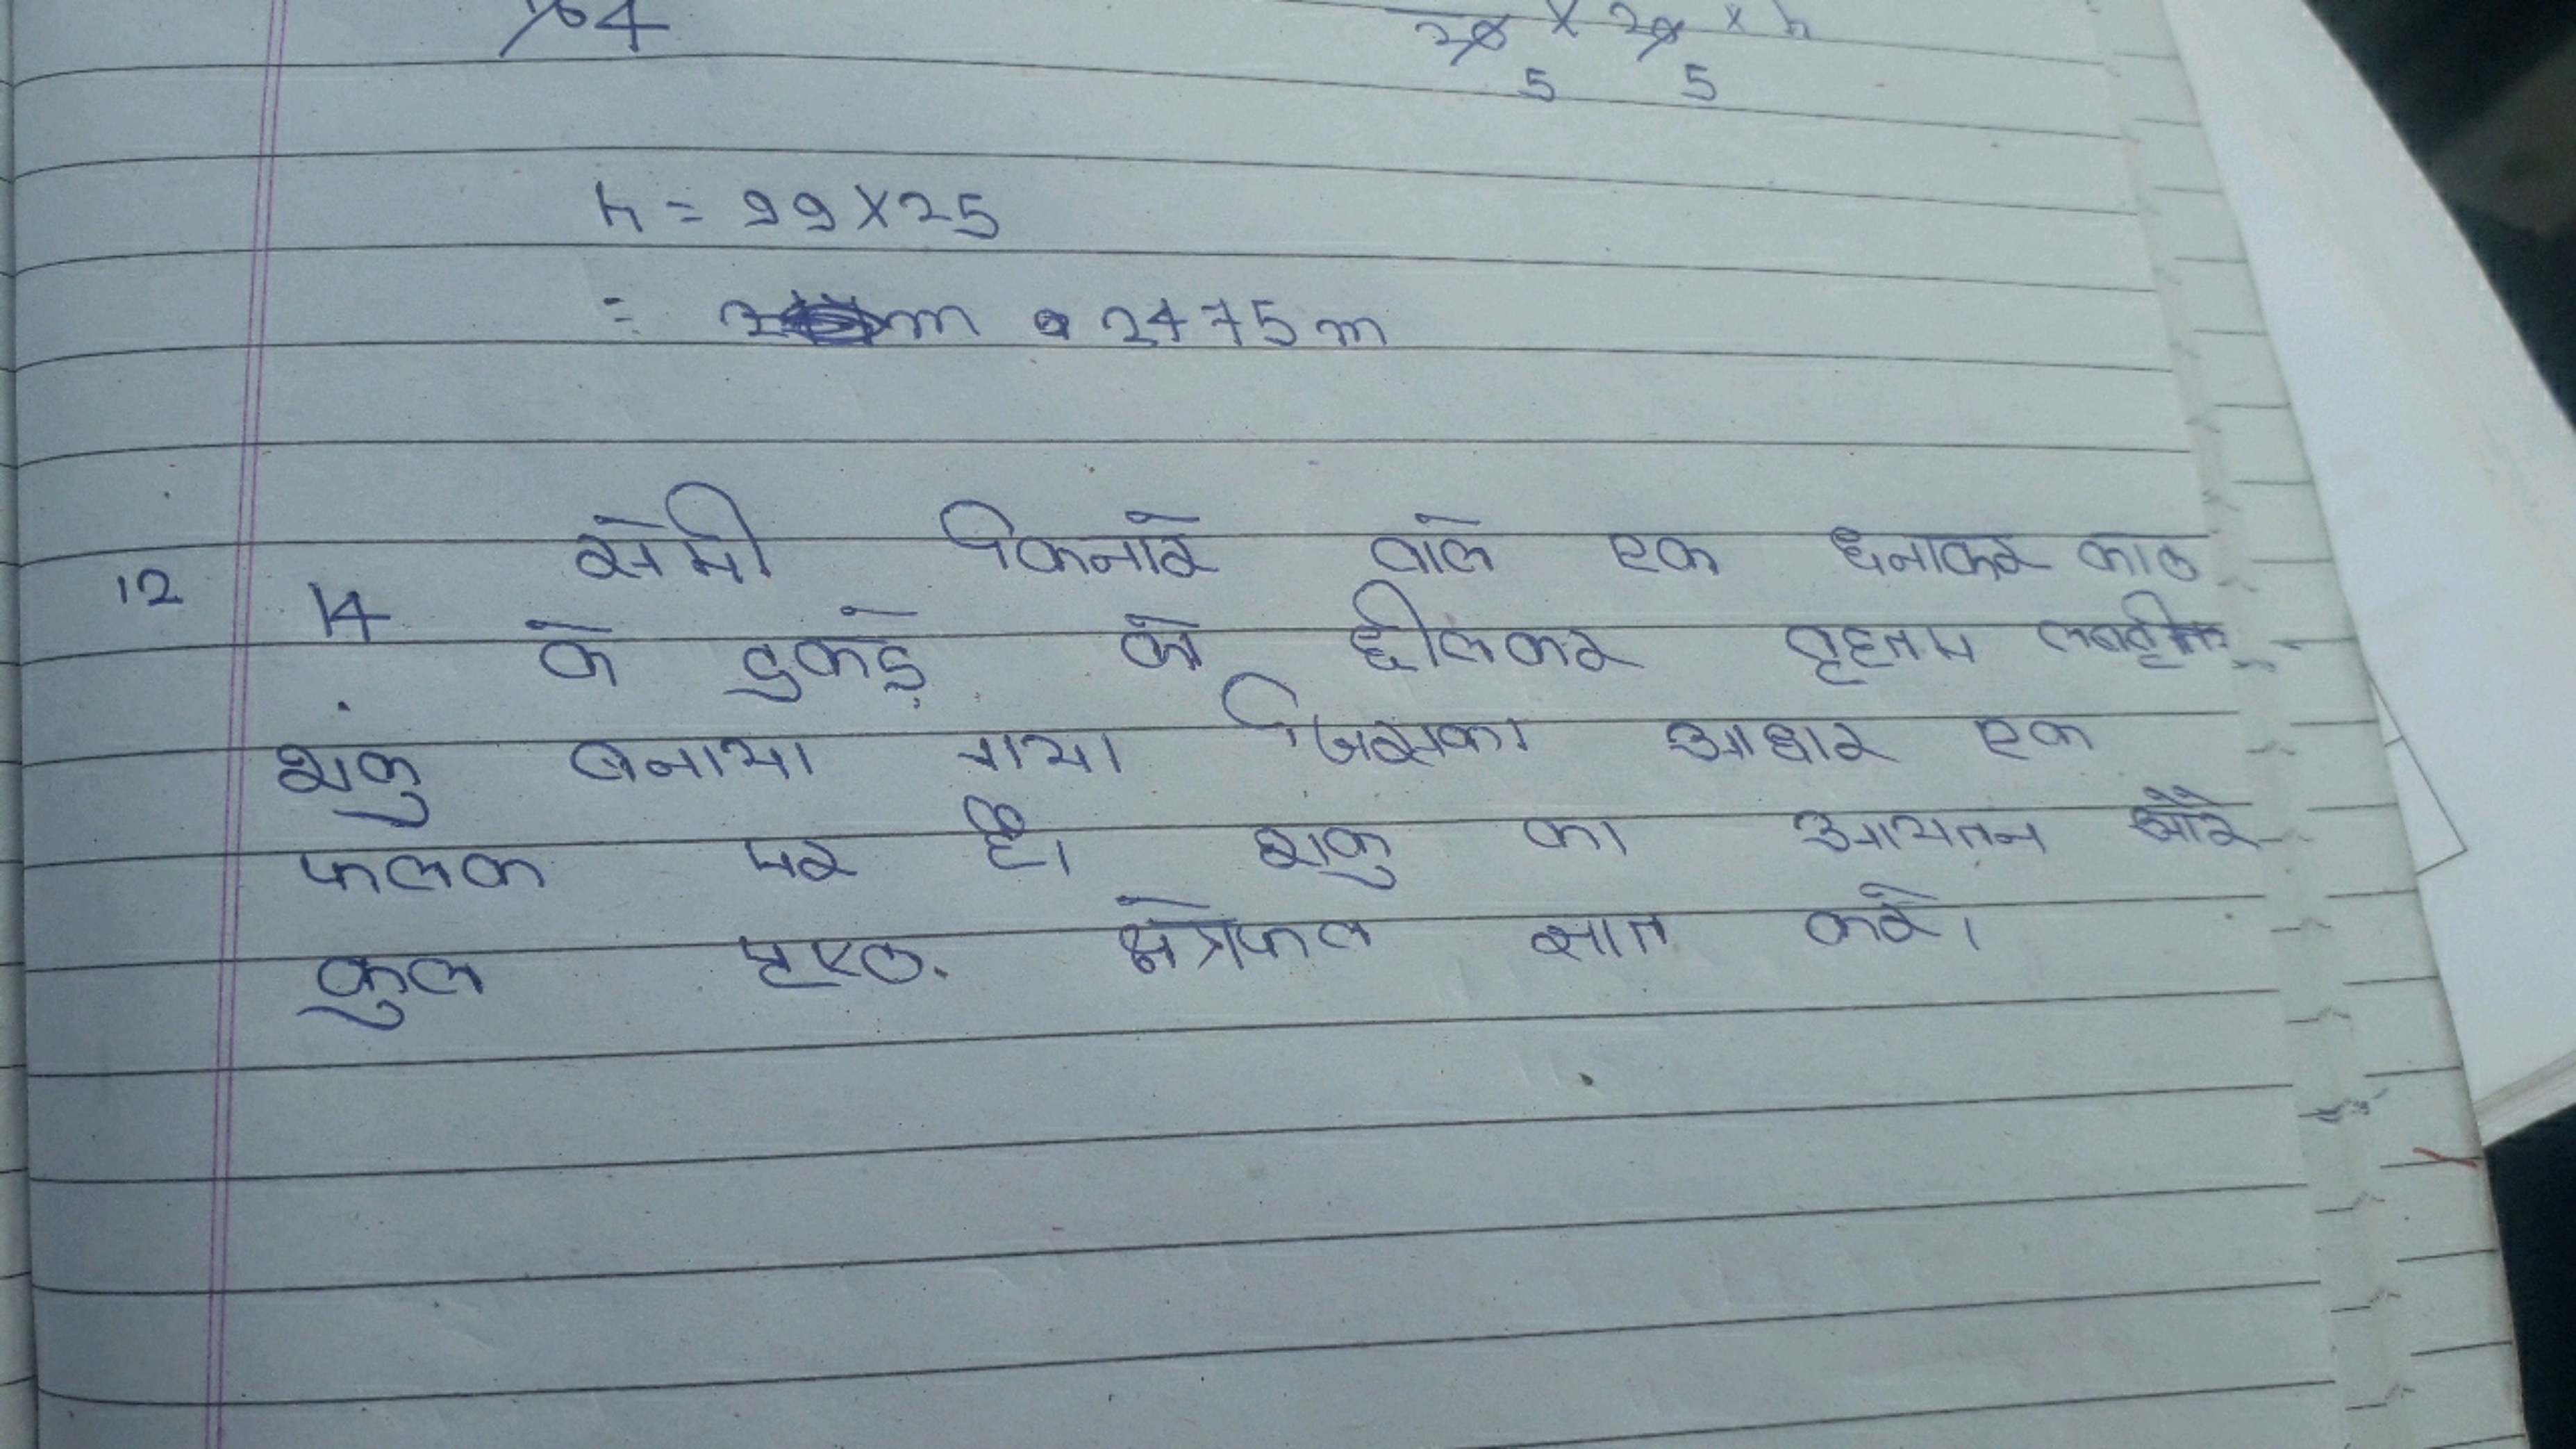 64
20 × 20 × h
5 5
h = 99 × 25
= 2 m 2475 m
12 14 सेमी किनारे वाले एक धनाकर काठ
के टुकड़े को छीलकर वृहतम
शंकु बनाया गया जिसका आधार एक
फलक पर है। शकु का आयतन और
कुल पृष्ठ. क्षेत्रफल ज्ञात करे।